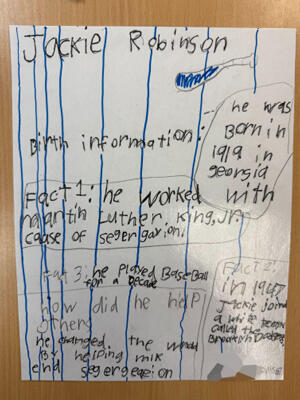 Jackie Robinson
Birth information:
he was
Born in
1919 in
georgia
Fact 1: he worked with
martin Luther. King, Jr
cause of segergavioni
Fact 3: he Played BaseBall
for a decade
Fact 2:
in 1947
Jackie joind
a white team
called the
how did he help
others
he changed the world
By helping mlk
end segergeaion